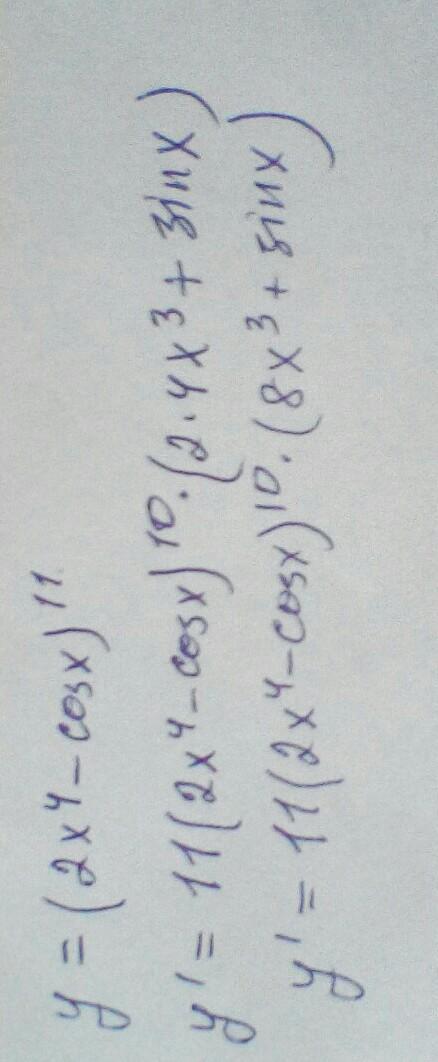 y = (2x⁴ - cosx)¹¹
y' = 11(2x⁴ - cosx)¹⁰ · (2 · 4x³ + sinx)
y' = 11(2x⁴ - cosx)¹⁰ · (8x³ + sinx)